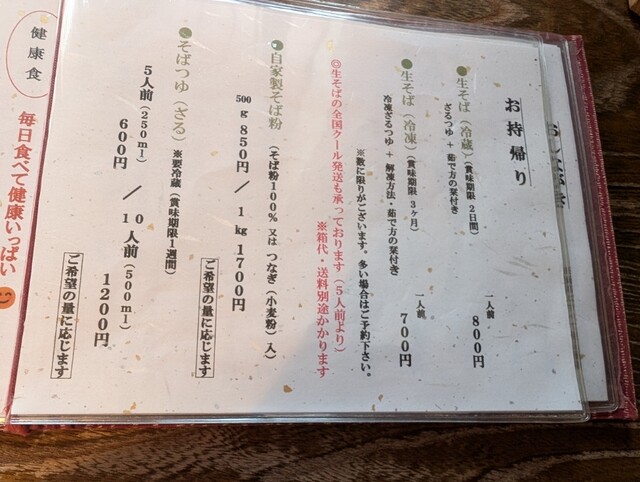 お持帰り
●生そば（冷蔵）（賞味期限 2日間）
ざるつゆ + 茹で方の栞付き
一人前 800円
●生そば（冷凍）（賞味期限 3ヶ月）
冷凍ざるつゆ + 解凍方法・茹で方の栞付き
一人前 700円
※数に限りがございます。多い場合はご予約下さい。
◎生そばの全国クール発送も承っております（5人前より）
※箱代・送料別途かかります
●自家製そば粉（そば粉100% 又は つなぎ（小麦粉）入）
500g 850円 / 1kg 1700円
ご希望の量に応じます
●そばつゆ（ざる）※要冷蔵（賞味期限1週間）
5人前（250ml） / 10人前（500ml）
600円 1200円
ご希望の量に応じます
健康食
毎日食べて健康いっぱい